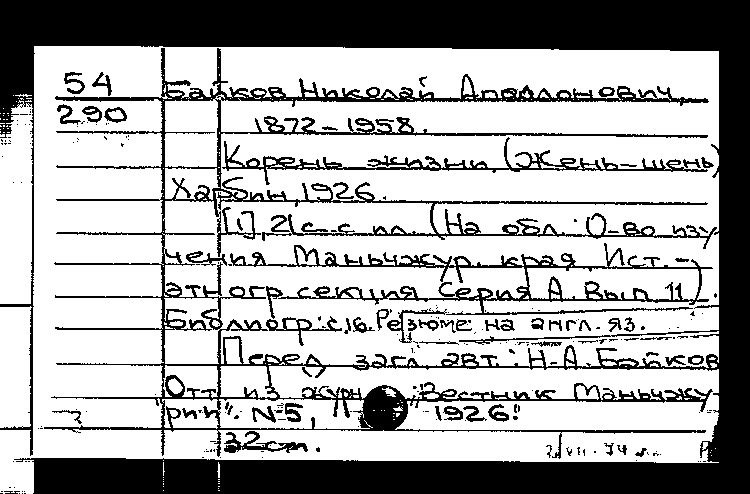 54 Байков, Николай Аполлонович,
290 1872-1958.
Корень жизни (Жень-шень)
Харбин, 1926.
[1], 21с. с ил. (На обл.: О-во изу-
чения Маньчжур. края. Ист.-
этногр. секция. Серия А. Вып. 11).
Библиогр: с. 16. Резюме на англ. яз.
Перед загл. авт.: Н.А. Байков
Отт. из журн. „Вестник Маньчжу-
рии". N-5, 1926.
32 cm.